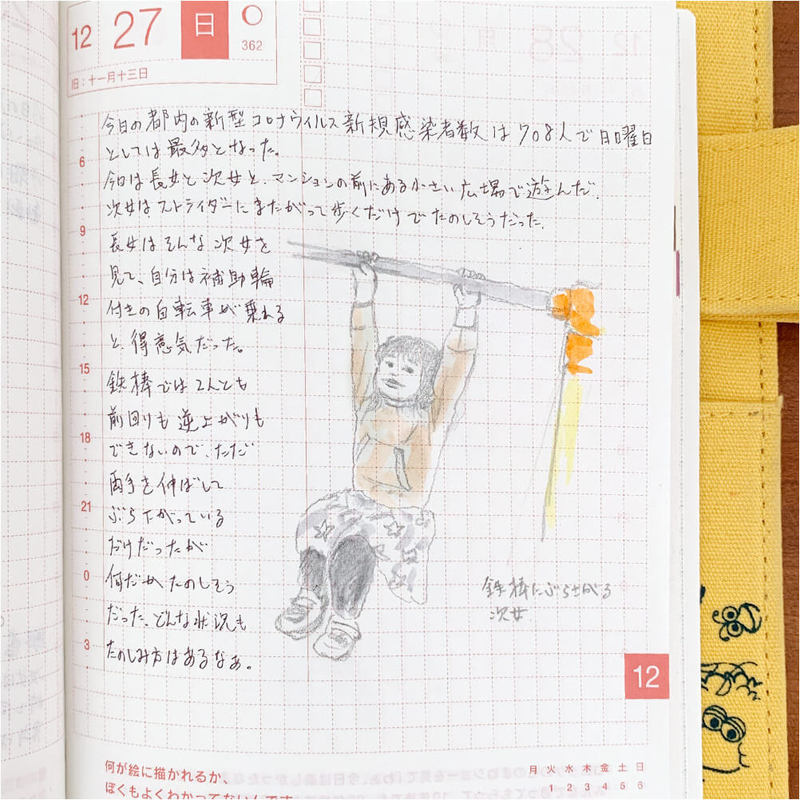 12 27 日
362
旧:十一月十三日
今日の都内の新型コロナウイルス新規感染者数は708人で日曜日
としては最多となった。
今日は長女と次女と、マンションの前にある小さい広場で遊んだ。
次女はストライダーにまたがって歩くだけでたのしそうだった。
長女はそんな次女を
見て、自分は補助輪
付きの自転車が乗れる
と、得意気だった。
鉄棒では2人とも
前回りも逆上がりも
できないので、ただ
両手を伸ばして
ぶら下がっている
だけだったが
何だかたのしそう
だった、どんな状況も
たのしみ方はあるなぁ。
6
9
12
15
18
21
0
3
鉄棒にぶら下がる
次女
12
何が絵に描かれるか、
ぼくもよくわかってないんです
月 火 水 木 金 土 日
1 2 3 4 5 6